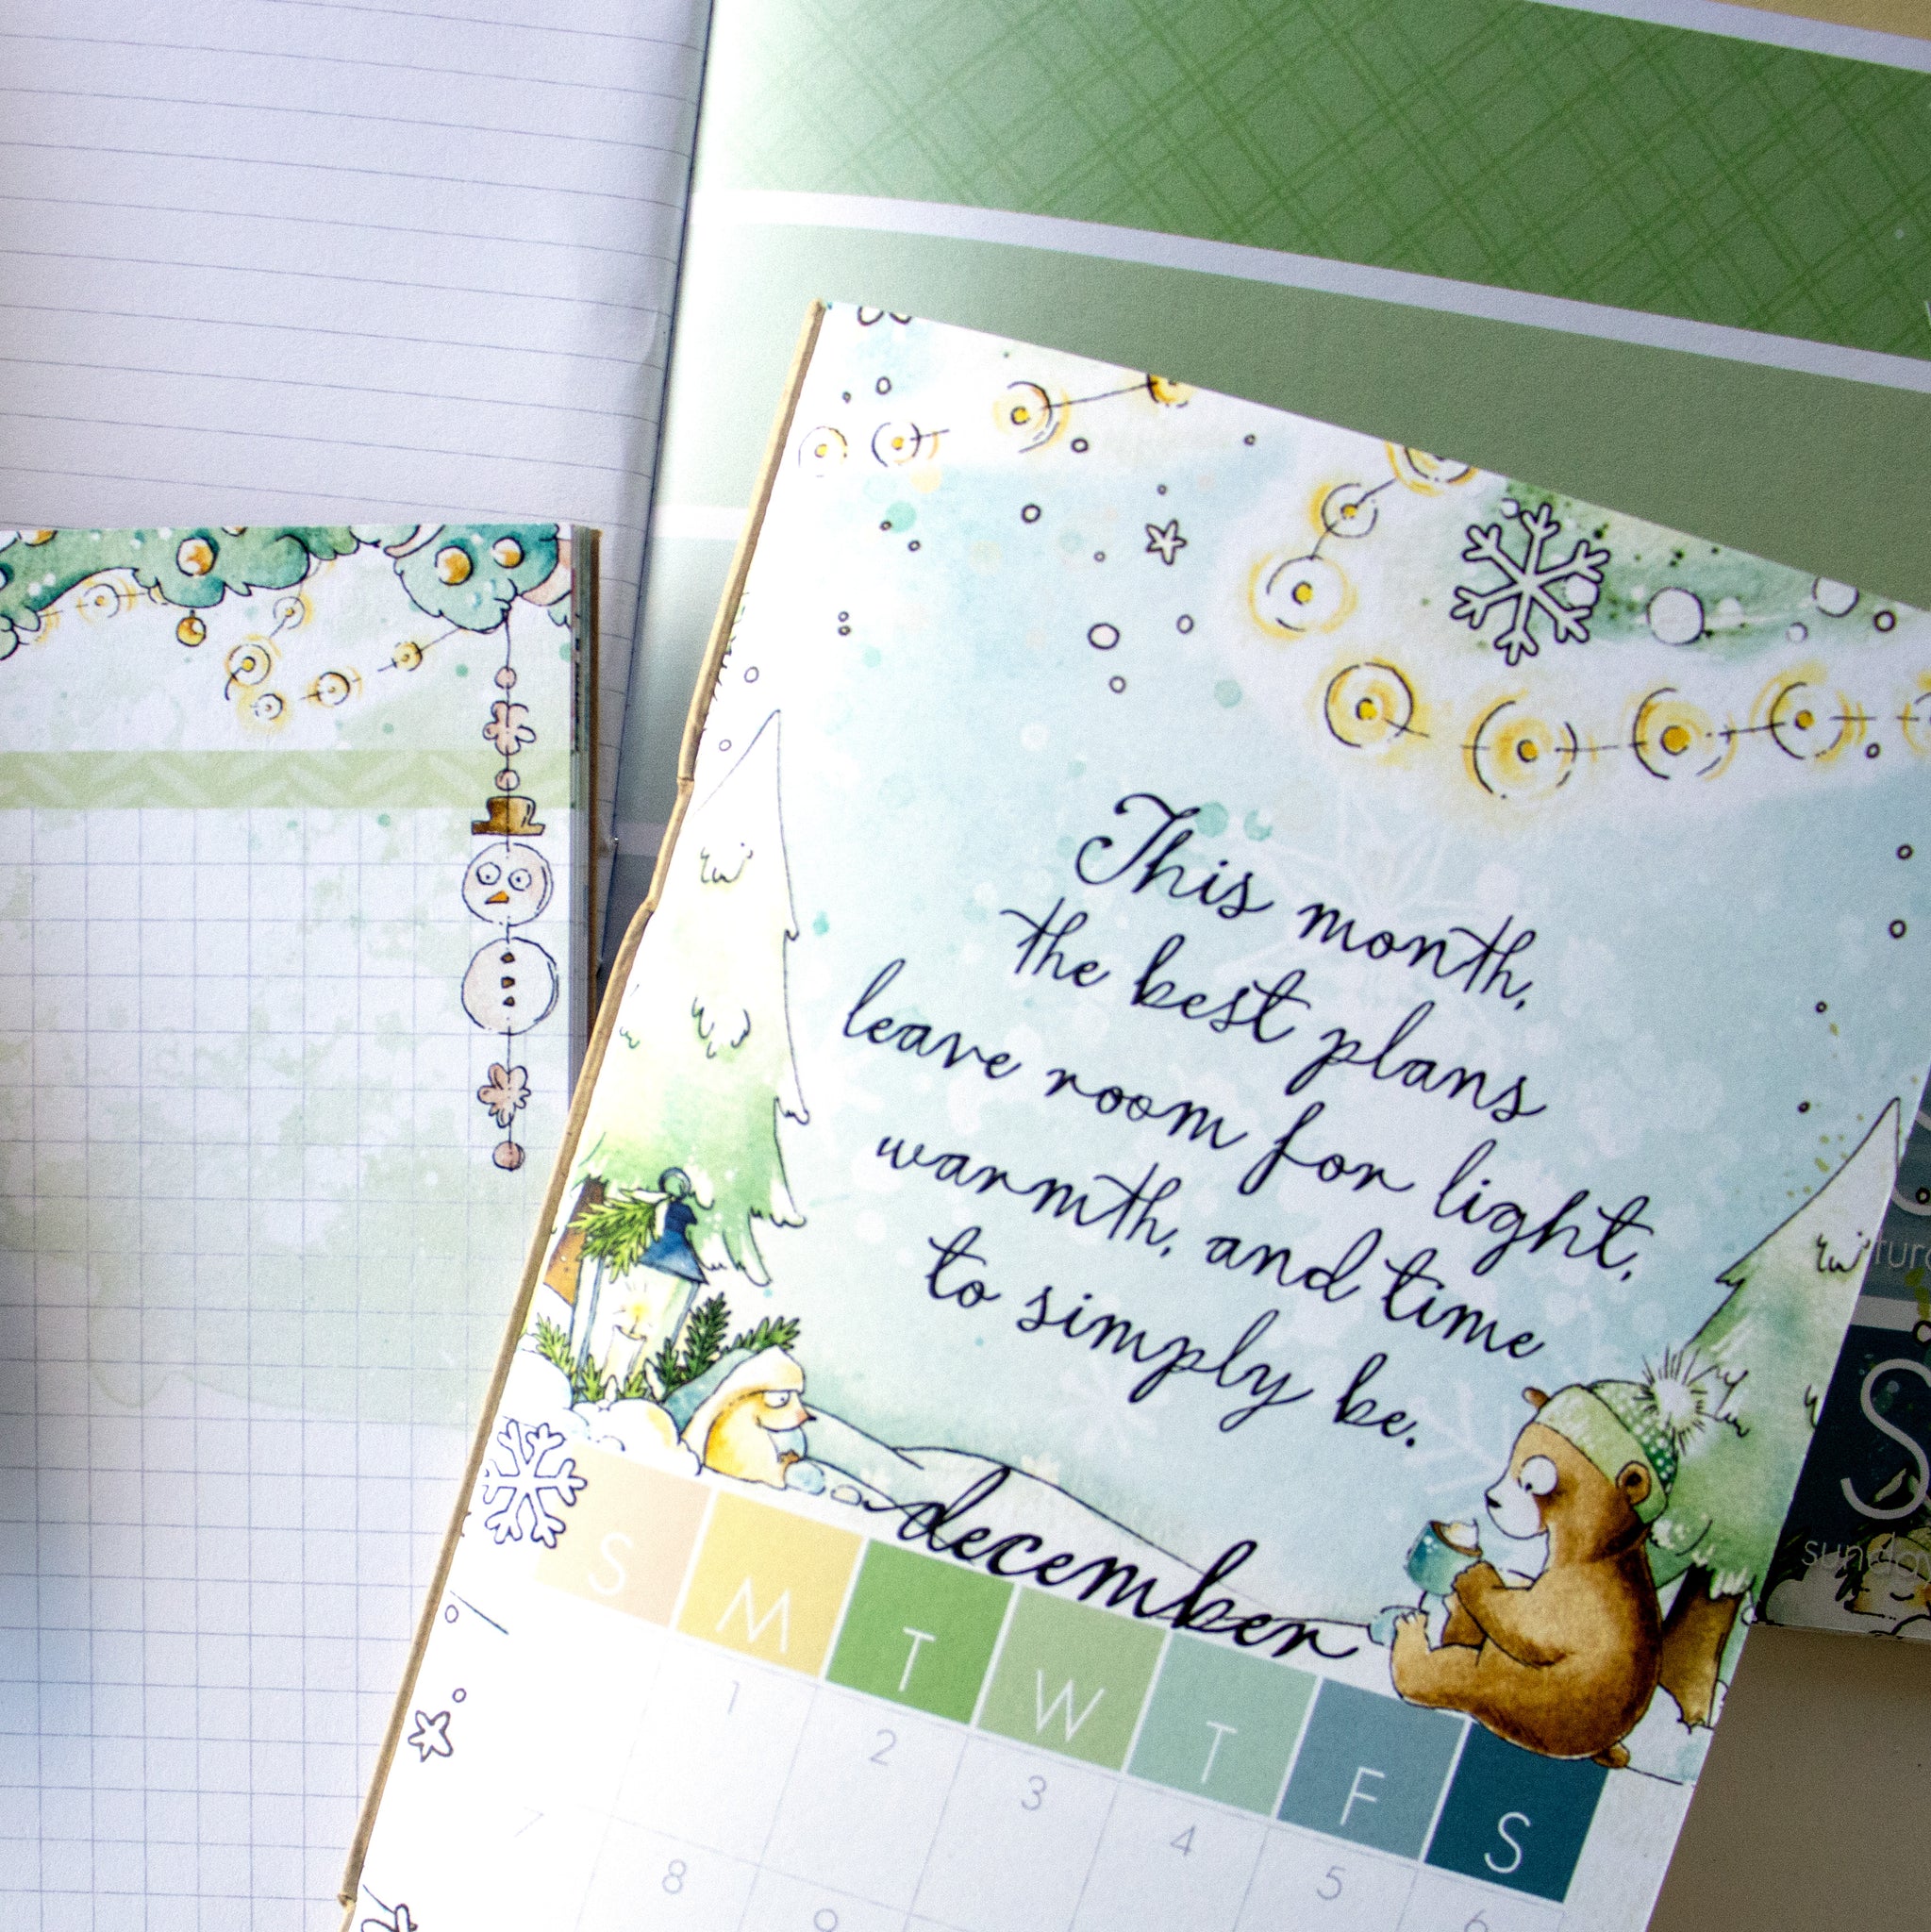 This month,
the best plans
leave room for light,
warmth, and time
to simply be.
december
S M T W T F S
1 2 3 4 5 6
7 8 9
S